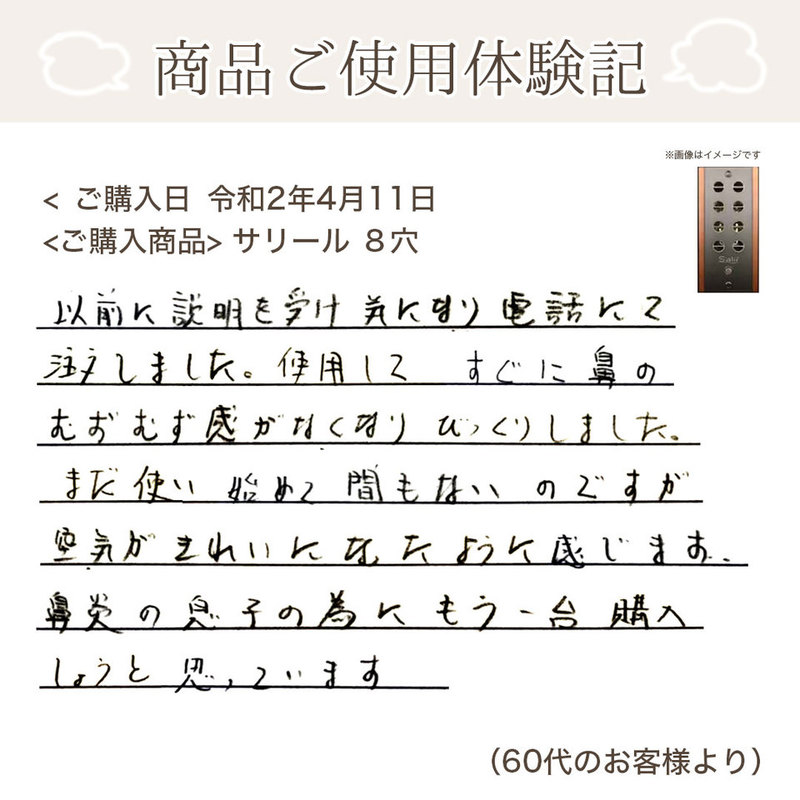 商品ご使用体験記
※画像はイメージです
< ご購入日 令和2年4月11日
<ご購入商品> サリール 8穴
Salir
以前に説明を受け気になり電話にて
注文しました。使用して すぐに鼻の
むずむず感がなくなりびっくりしました。
まだ使い始めて間もないのですが
空気がきれいになったように感じます。
鼻炎の息子の為にもう一台購入
しようと思っています
(60代のお客様より)